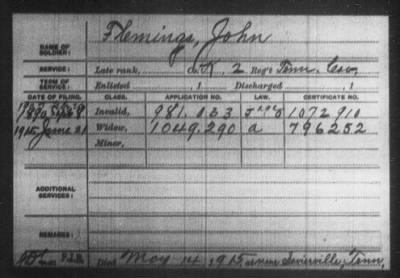 Flemings, John
NAME OF SOLDIER:
SERVICE: Late rank, Co. K, 2 Reg't Tenn. Cav.
TERM OF SERVICE: Enlisted , 1 Discharged , 1
DATE OF FILING. CLASS. APPLICATION NO. LAW. CERTIFICATE NO.
Invalid, 981.033 1072910
1915 June 21 Widow, 1049.290 a 796252
Minor,
ADDITIONAL SERVICES:
REMARKS:
Died May 14, 1915, Sevierville, Tenn.